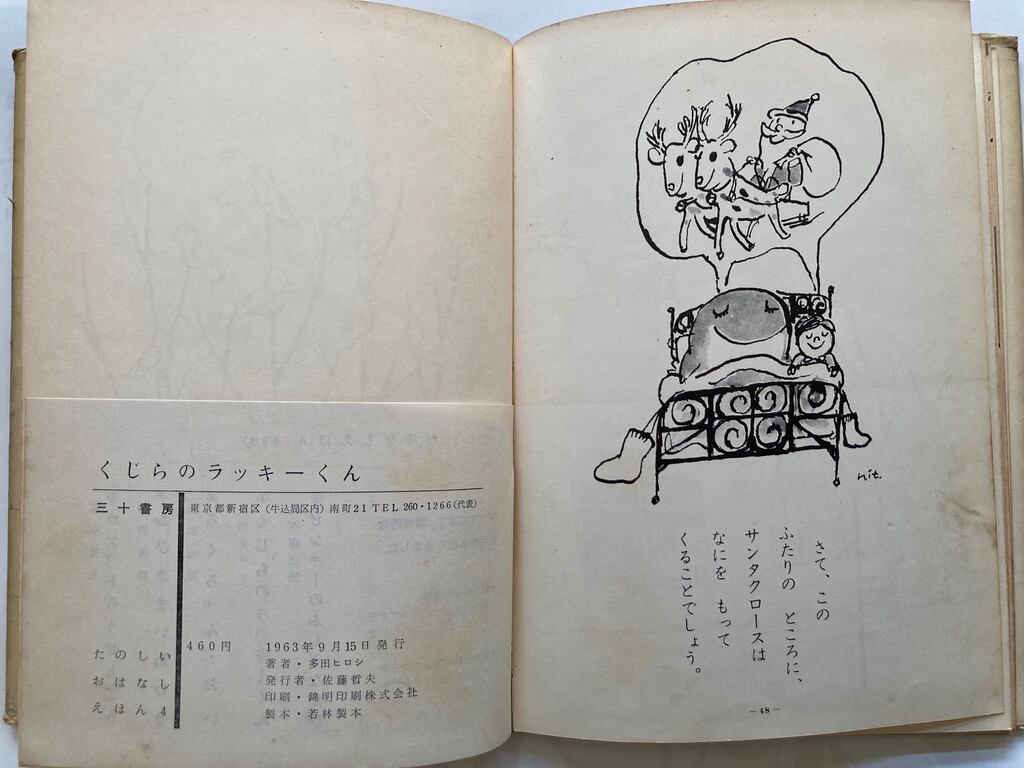 くじらのラッキーくん
三十書房
東京都新宿区(牛込局区内)南町21 TEL 260・1266(代表)
460円
1963年9月15日 発行
著者・多田ヒロシ
発行者・佐藤哲夫
印刷・錦明印刷株式会社
製本・若林製本
たのしい
おはなし
えほん4
nit.
さて、この
ふたりの ところに、
サンタクロースは
なにを もって
くることでしょう。
—48—